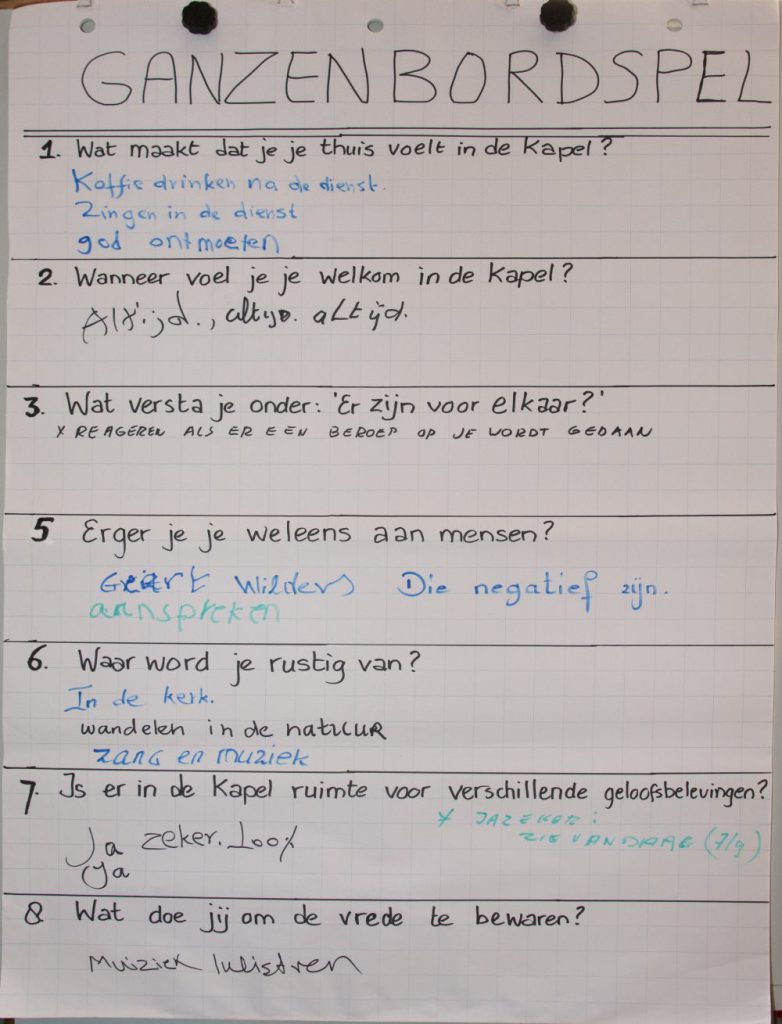 GANZENBORDSPEL
1. Wat maakt dat je je thuis voelt in de Kapel?
Koffie drinken na de dienst.
Zingen in de dienst
god ontmoeten
2. Wanneer voel je je welkom in de Kapel?
Altijd., altijd. altijd.
3. Wat versta je onder: 'Er zijn voor elkaar?'
x REAGEREN ALS ER EEN BEROEP OP JE WORDT GEDAAN
5 Erger je je weleens aan mensen?
Geert Wilders Die negatief zijn.
aanspreken
6. Waar word je rustig van?
In de kerk.
wandelen in de natuur
zang en muziek
7. Is er in de Kapel ruimte voor verschillende geloofsbelevingen?
x JAZEKER:
ZIE VANDAAG (7/9)
Ja zeker. 100%
Ja
8 Wat doe jij om de vrede te bewaren?
Muiziek luistren